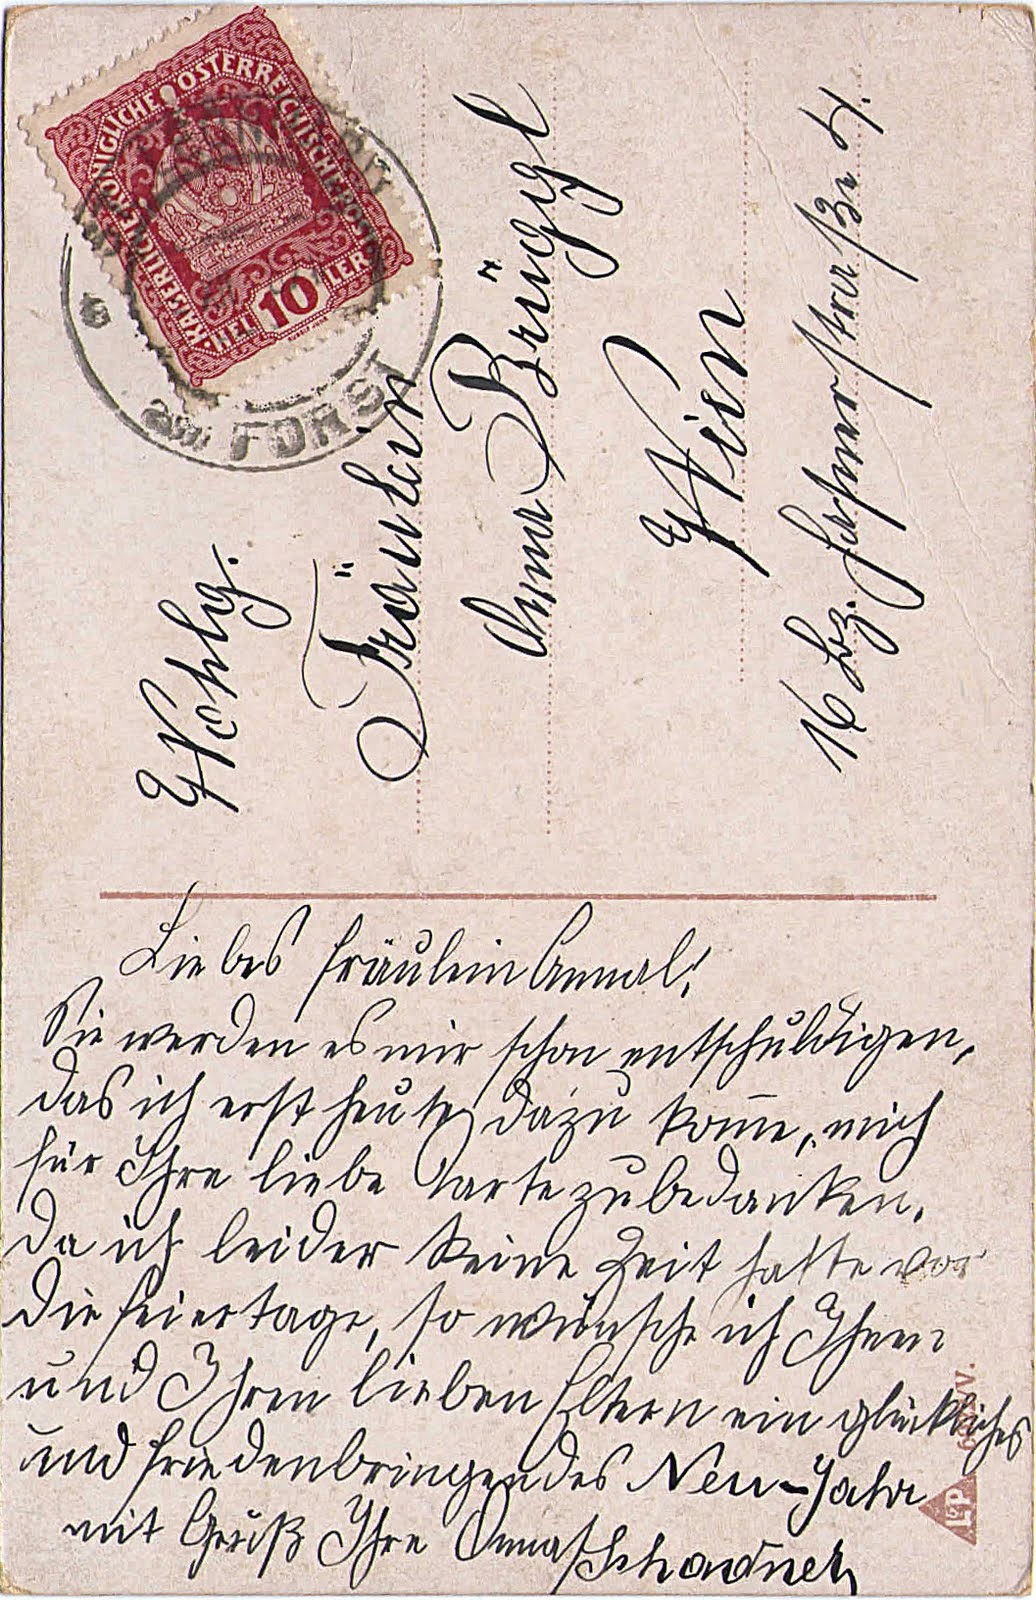 KAISERLICHE KÖNIGLICHE ÖSTERREICHISCHE POST
HELLER
10
am FORST
Wohlg.
Fräulein
Anna Brüggl
Wien
16 Bz. 4.
Liebes Fräulein Annal!
Sie werden es mir schon entschuldigen,
das ich erst heute dazu kome, mich
für Ihre liebe Carte zubedanken.
Da ich leider keine Zeit hatte vor
die Feiertage, so wünsche ich Ihnen
und Ihren lieben Eltern ein glückliches
und friedenbringendes Neu-Jahr
mit Gruß Ihre Anna
L&P